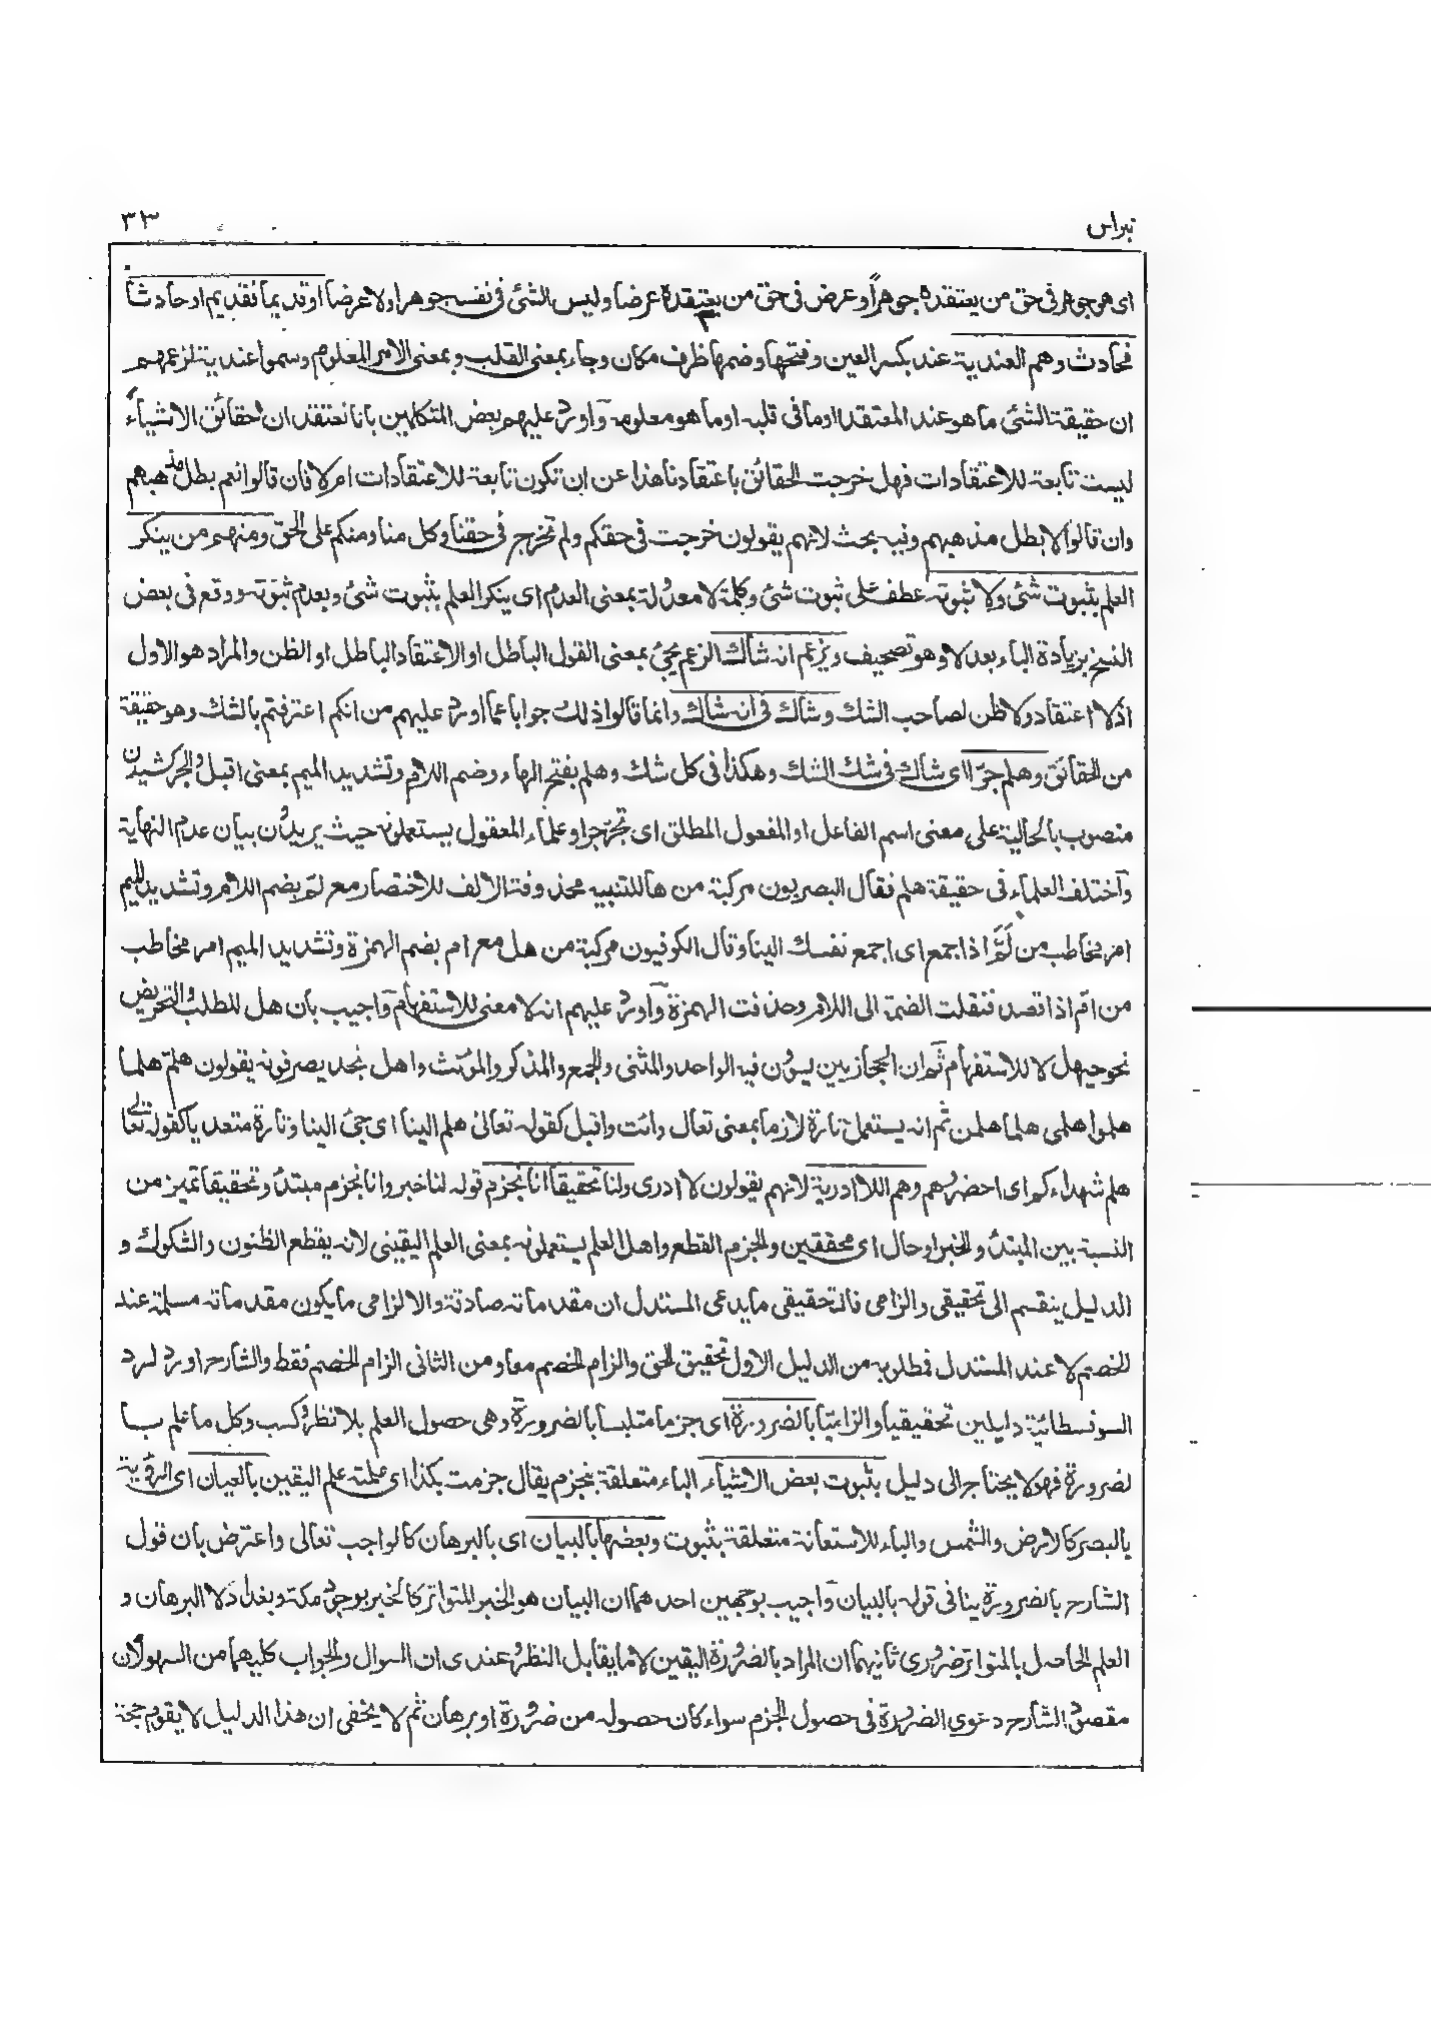 نبراس ٣٣
اى هو جوهر فى حق من يعتقده جوهراً و عرض فى حق من يعتقده عرضا وليس الشئ فى نفسه جوهرا ولا عرضا او قديما فقديم او حادثاً
فحادث وهم العندية عند بكسر العين وفتحها وضمها ظرف مكان وجاء بمعنى القلب وبمعنى الامر المعلوم وسموا عندية لزعمهم
ان حقيقة الشئ ما هو عند المعتقد او ما فى قلبه او ما هو معلومه وآورد عليهم بعض المتكلمين بانا نعتقد ان حقائق الاشياء
ليست تابعة للاعتقادات فهل خرجت الحقائق باعتقادنا هذا عن ان تكون تابعة للاعتقادات ام لا فان قالوا نعم بطل مذهبهم
وان قالوا لا بطل مذهبهم وفيه بحث لانهم يقولون خرجت فى حقكم ولم تخرج فى حقنا وكل منا ومنكم على الحق ومنهم من ينكر
العلم بثبوت شئ ولا ثبوته عطف على ثبوت شئ وكلمة لا معدولة بمعنى العدم اى ينكر العلم بثبوت شئ وبعدم ثبوته ووقع فى بعض
النسخ بزيادة الباء بعد لا وهو تصحيف ويزعم انه شاك الزعم يجئ بمعنى القول الباطل او الاعتقاد الباطل او الظن والمراد هو الاول
اذ لا اعتقاد ولا ظن لصاحب الشك وشاك فى انه شاك وانما قالوا ذلك جوابا عما اورد عليهم من انكم اعترفتم بالشك وهو حقيقة
من الحقائق وهلم جرّا اى شاك فى شك الشك وهكذا فى كل شك وهلم بفتح الهاء وضم اللام وتشديد الميم بمعنى اقبل والجر كشيدن
منصوب بالحالية على معنى اسم الفاعل او المفعول المطلق اى تجرّ جرا وعلماء المعقول يستعملونه حيث يريدون بيان عدم النهاية
وآختلف العلماء فى حقيقة هلم فقال البصريون مركبة من ها للتنبيه محذوفة الالف للاختصار مع لمّ بضم اللام وتشديد الميم
امر مخاطب من لَمَّ اذا جمع اى اجمع نفسك الينا وقال الكوفيون مركبة من هل مع ام بضم الهمزة وتشديد الميم امر مخاطب
من امّ اذا قصد فنقلت الضمة الى اللام وحذفت الهمزة وآورد عليهم انه لا معنى للاستفهام وآجيب بان هل للطلب والتحريض
نحو حيهل لا للاستفهام ثم ان الحجازيين يسوّن فيه الواحد والمثنى والجمع والمذكر والمؤنث واهل نجد يصرفونه يقولون هلم هلما
هلموا هلمى هلما هلمن ثم انه يستعمل تارة لازما بمعنى تعال وائت واقبل كقوله تعالى هلم الينا اى جئ الينا وتارة متعديا كقوله تعالى
هلم شهداءكم اى احضروهم وهم اللاادرية لانهم يقولون لا ادرى ولنا تحقيقا انا نجزم قوله لنا خبر وانا نجزم مبتدأ وتحقيقا تميز من
النسبة بين المبتدأ والخبر او حال اى محققين والجزم القطع واهل العلم يستعملونه بمعنى العلم اليقينى لانه يقطع الظنون والشكوك و
الدليل ينقسم الى تحقيقى والزامى فالتحقيقى ما يدعى المستدل ان مقدماته صادقة والالزامى ما يكون مقدماته مسلمة عند
الخصم لا عند المستدل فمطلوبه من الدليل الاول تحقيق الحق والزام الخصم معا ومن الثانى الزام الخصم فقط والشارح اورد لرد
السوفسطائية دليلين تحقيقيا والزاميّا بالضرورة اى جزما متلبسا بالضرورة وهى حصول العلم بلا نظر وكسب وكل ما علم با
لضرورة فهو لا يحتاج الى دليل بثبوت بعض الاشياء الباء متعلقة بنجزم يقال جزمت بكذا اى علمته علم اليقين بالعيان اى الرؤية
بالبصر كالارض والشمس والباء للاستعانة متعلقة بثبوت وبعضها بالبيان اى بالبرهان كالواجب تعالى واعترض بان قول
الشارح بالضرورة ينافى قوله بالبيان وآجيب بوجهين احدهما ان البيان هو الخبر المتواتر كالخبر بوجود مكة وبغداد لا البرهان و
العلم الحاصل بالمتواتر ضرورى ثانيهما ان المراد بالضرورة اليقين لا ما يقابل النظر وعندى ان السوال والجواب كليهما من السهو لان
مقصود الشارح دعوى الضرورة فى حصول الجزم سواء كان حصوله من ضرورة او برهان ثم لا يخفى ان هذا الدليل لا يقوم حجة